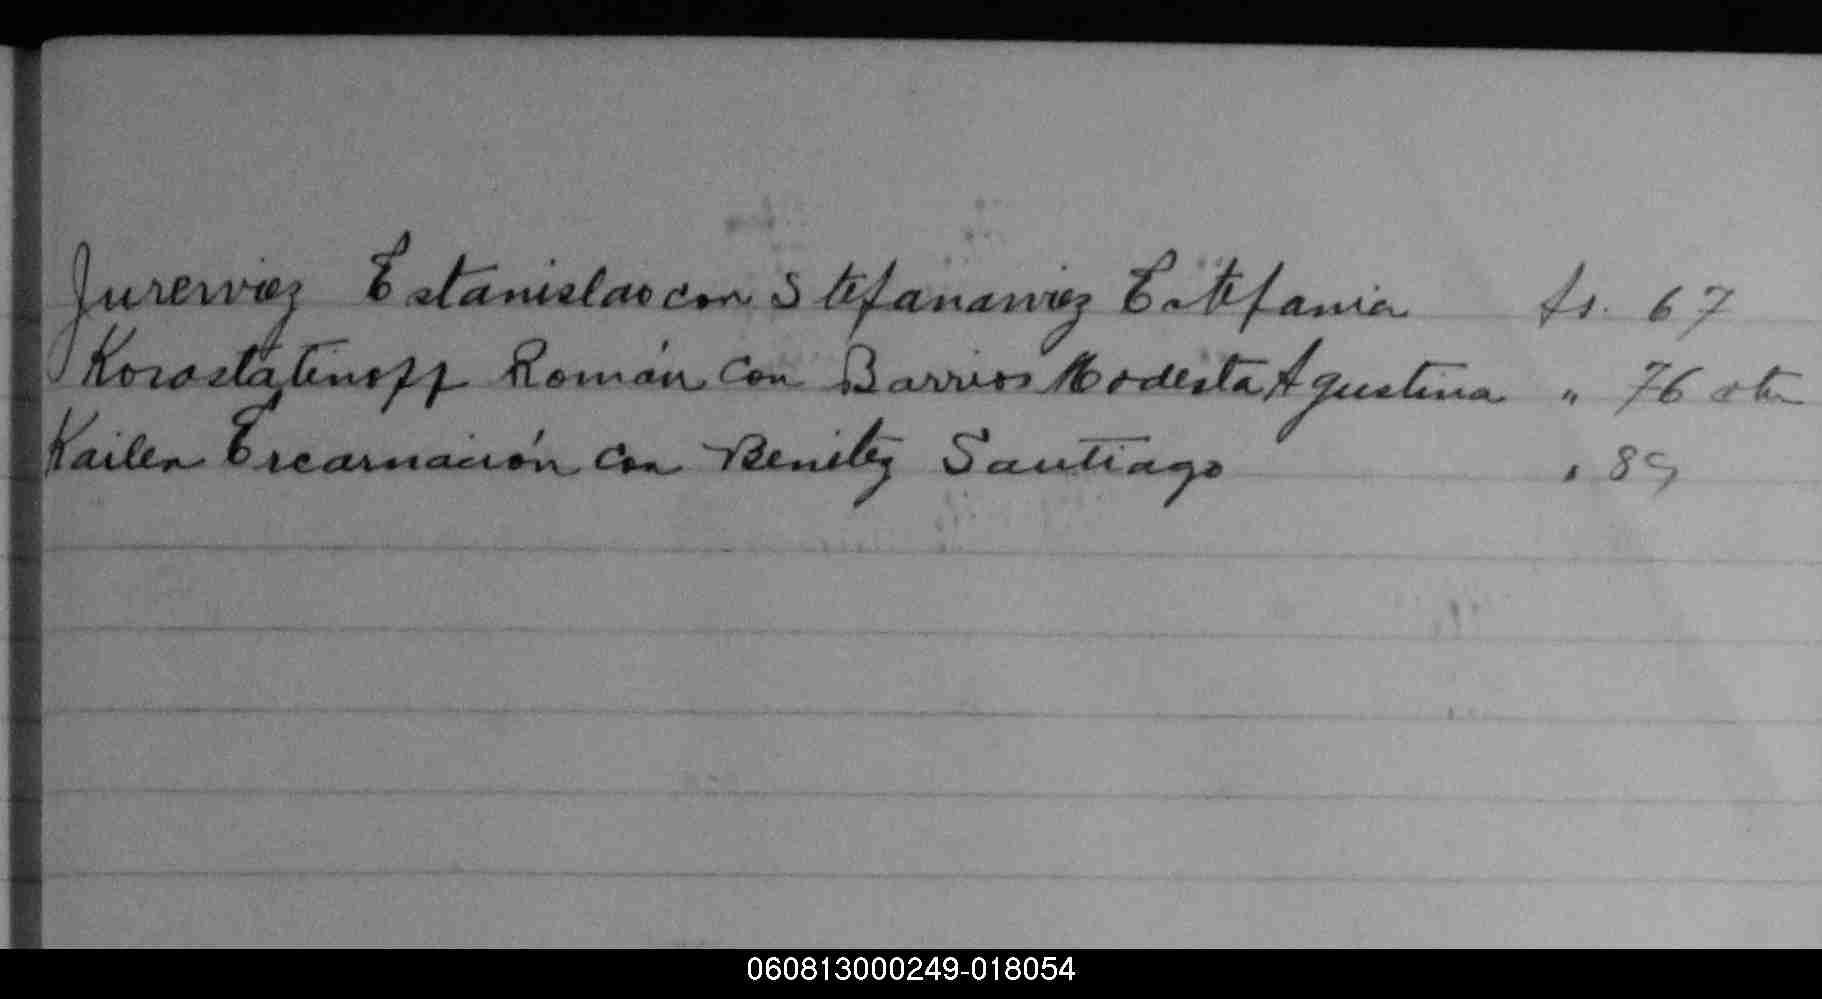 Jurewicz Estanislao con Stefanawicz Estefania fs. 67
Korostatinoff Román con Barrios Modesta Agustina " 76 vta
Kailer Encarnación con Benitez Santiago " 89
060813000249-018054